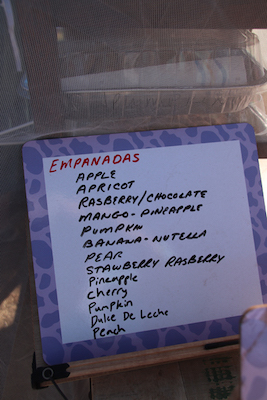 EMPANADAS
APPLE
APRICOT
RASBERRY/CHOCOLATE
MANGO-PINEAPPLE
PUMPKIN
BANANA-NUTELLA
PEAR
STAWBERRY RASBERRY
Pineapple
Cherry
Pumpkin
Dulce De Leche
Peach